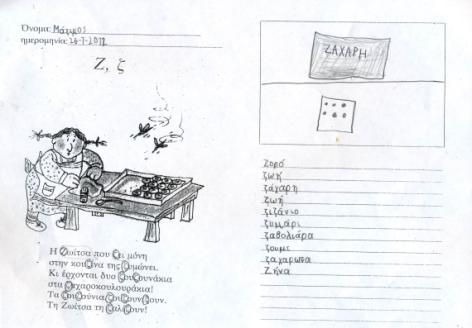 Όνομα: Μάξιμος
ημερομηνία: 26-7-2012
Ζ, ζ
Η Ζωίτσα που ζει μόνη
στην κουζίνα της ζυμώνει.
Κι έρχονται δυο ζουζουνάκια
στα ζαχαροκουλουράκια!
Τα ζουζούνια ζουζουνίζουν.
Τη Ζωίτσα τη ζαλίζουν!
ΖΑΧΑΡΗ
ζορό
ζωή
ζάχαρη
Ζωή
ζιζάνιο
ζυμάρι
ζαβολιάρα
ζουμε
ζαχαρωνα
Ζήνα